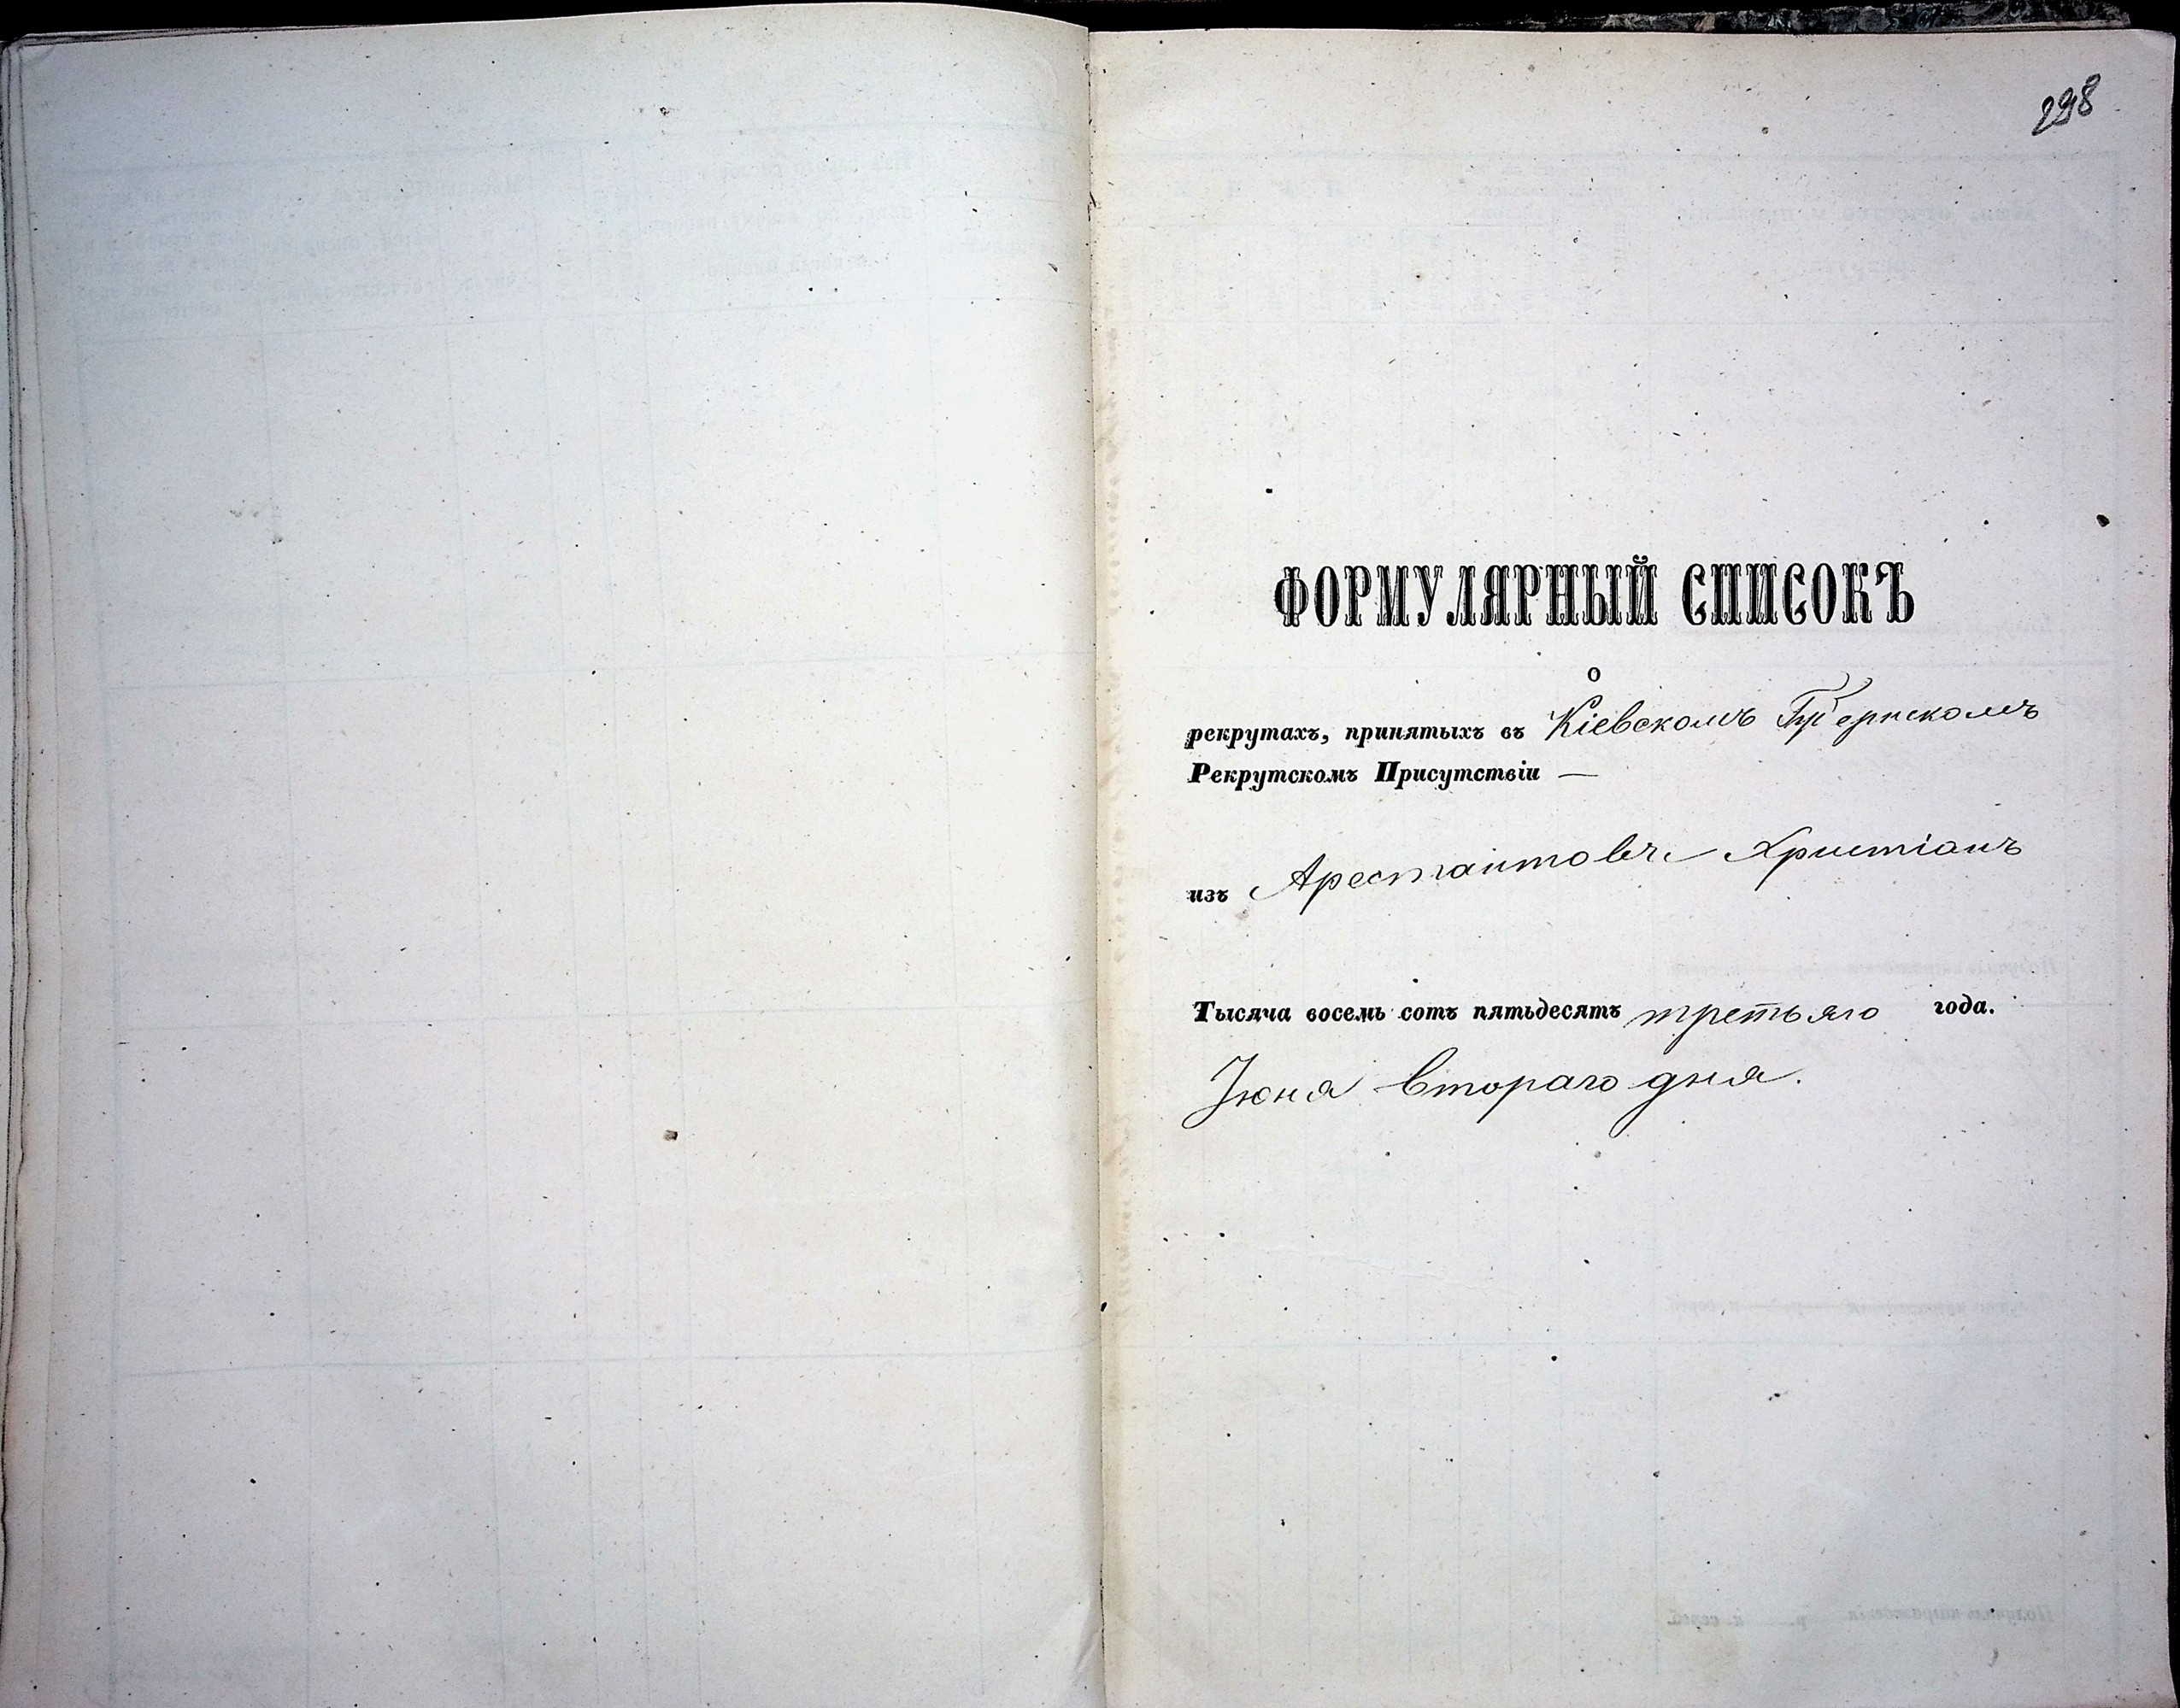 298
ФОРМУЛЯРНЫЙ СПИСОКЪ
о
рекрутахъ, принятыхъ въ Кіевскомъ Губернскомъ
Рекрутскомъ Присутствіи —
изъ Арестантовъ Христіанъ
Тысяча восемь сотъ пятьдесятъ третьяго года.
Іюня втораго дня.